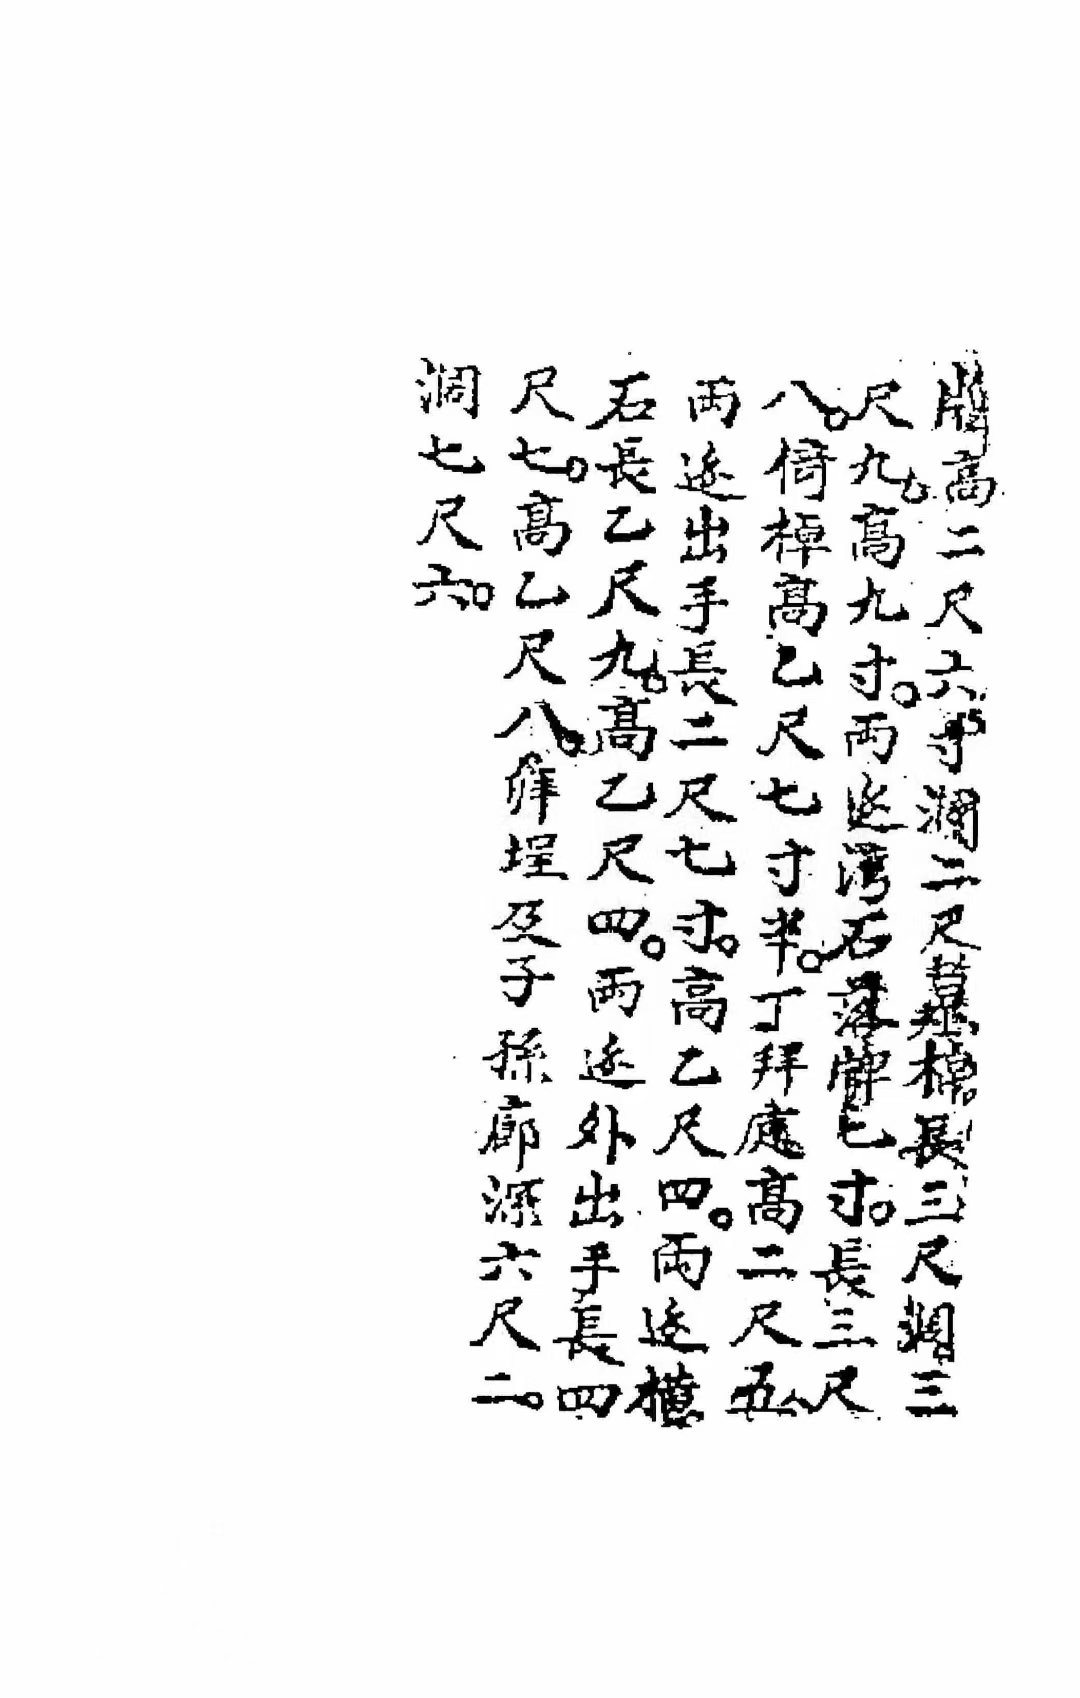 牌高二尺六寸濶二尺墓棹長三尺濶三
尺九七高九寸。兩迯灣石落牌七寸。長三尺
八。倚棹高乙尺七寸半。丁拜處高二尺五
兩迯出手長二尺七寸。高乙尺四。兩迯横
石長乙尺九七高乙尺四。兩迯外出手長四
尺七。高乙尺八。庠埕及子孫廊深六尺二。
濶七尺六。